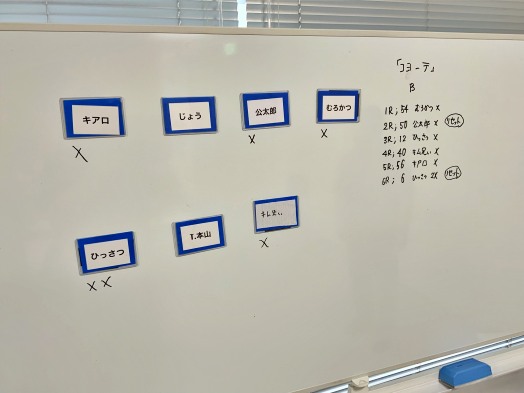 キアロ
じょう
公太郎
むろかつ
X
X
X
ひっさつ
T.本山
キム兄い
X X
X
「コヨーテ」
B
1R; 54 むろかつ X
2R; 50 公太郎 X リセット
3R; 12 ひっさつ X
4R; 40 キム兄い X
5R; 56 キアロ X
6R; 6 ひっさつ 2X リセット